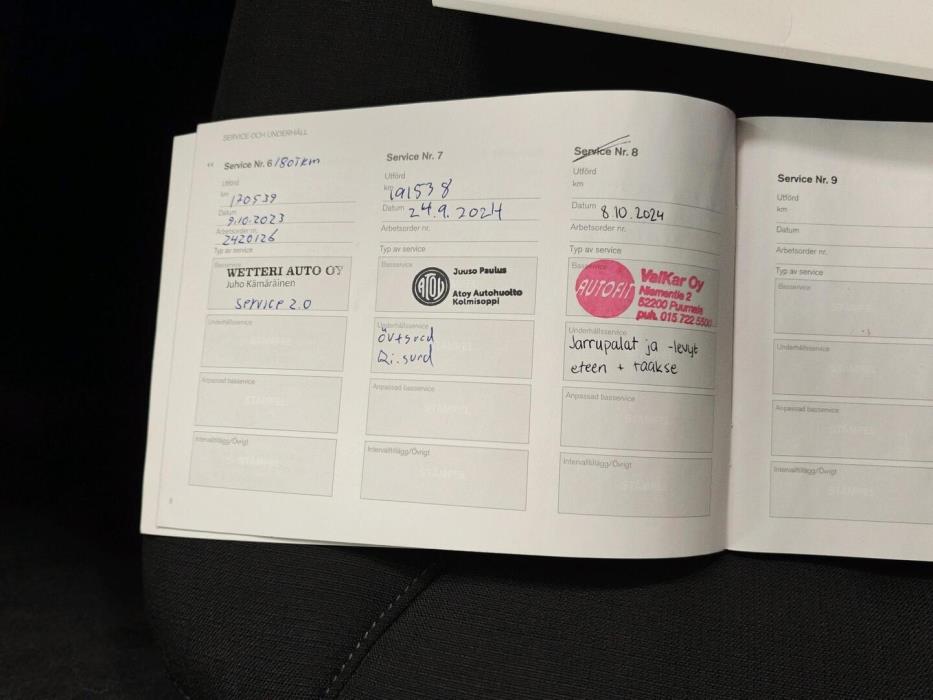 SERVICE OCH UNDERHÅLL
Service Nr. 6 /180Tkm
Utförd
km 170539
Datum 9.10.2023
Arbetsorder nr. 2420126
Typ av service
Basservice
WETTERI AUTO OY
Juho Kämäräinen
Service 2.0
Underhållsservice
STÄMPEL
Anpassad basservice
STÄMPEL
Intervalltillägg/Övrigt
STÄMPEL
8
Service Nr. 7
Utförd
km 191538
Datum 24.9.2024
Arbetsorder nr.
Typ av service
Basservice
ATOY
Juuso Paulus
Atoy Autohuolto
Kolmisoppi
Underhållsservice
Anpassad basservice
STÄMPEL
Intervalltillägg/Övrigt
STÄMPEL
Service Nr. 8
Utförd
km
Datum 8.10.2024
Arbetsorder nr.
Typ av service
AUTOFIT
ValKar Oy
Niementie 2
52200 Puumala
puh. 015 722 5500
Underhållsservice
Jarrupalat ja -levyt
eteen + taakse
Anpassad basservice
STÄMPEL
Intervalltillägg/Övrigt
STÄMPEL
Service Nr. 9
Utförd
km
Datum
Arbetsorder nr.
Typ av service
Basservice
STÄMPEL
Underhållsservice
STÄMPEL
Anpassad basservice
STÄMPEL
Intervalltillägg/Övrigt
STÄMPEL